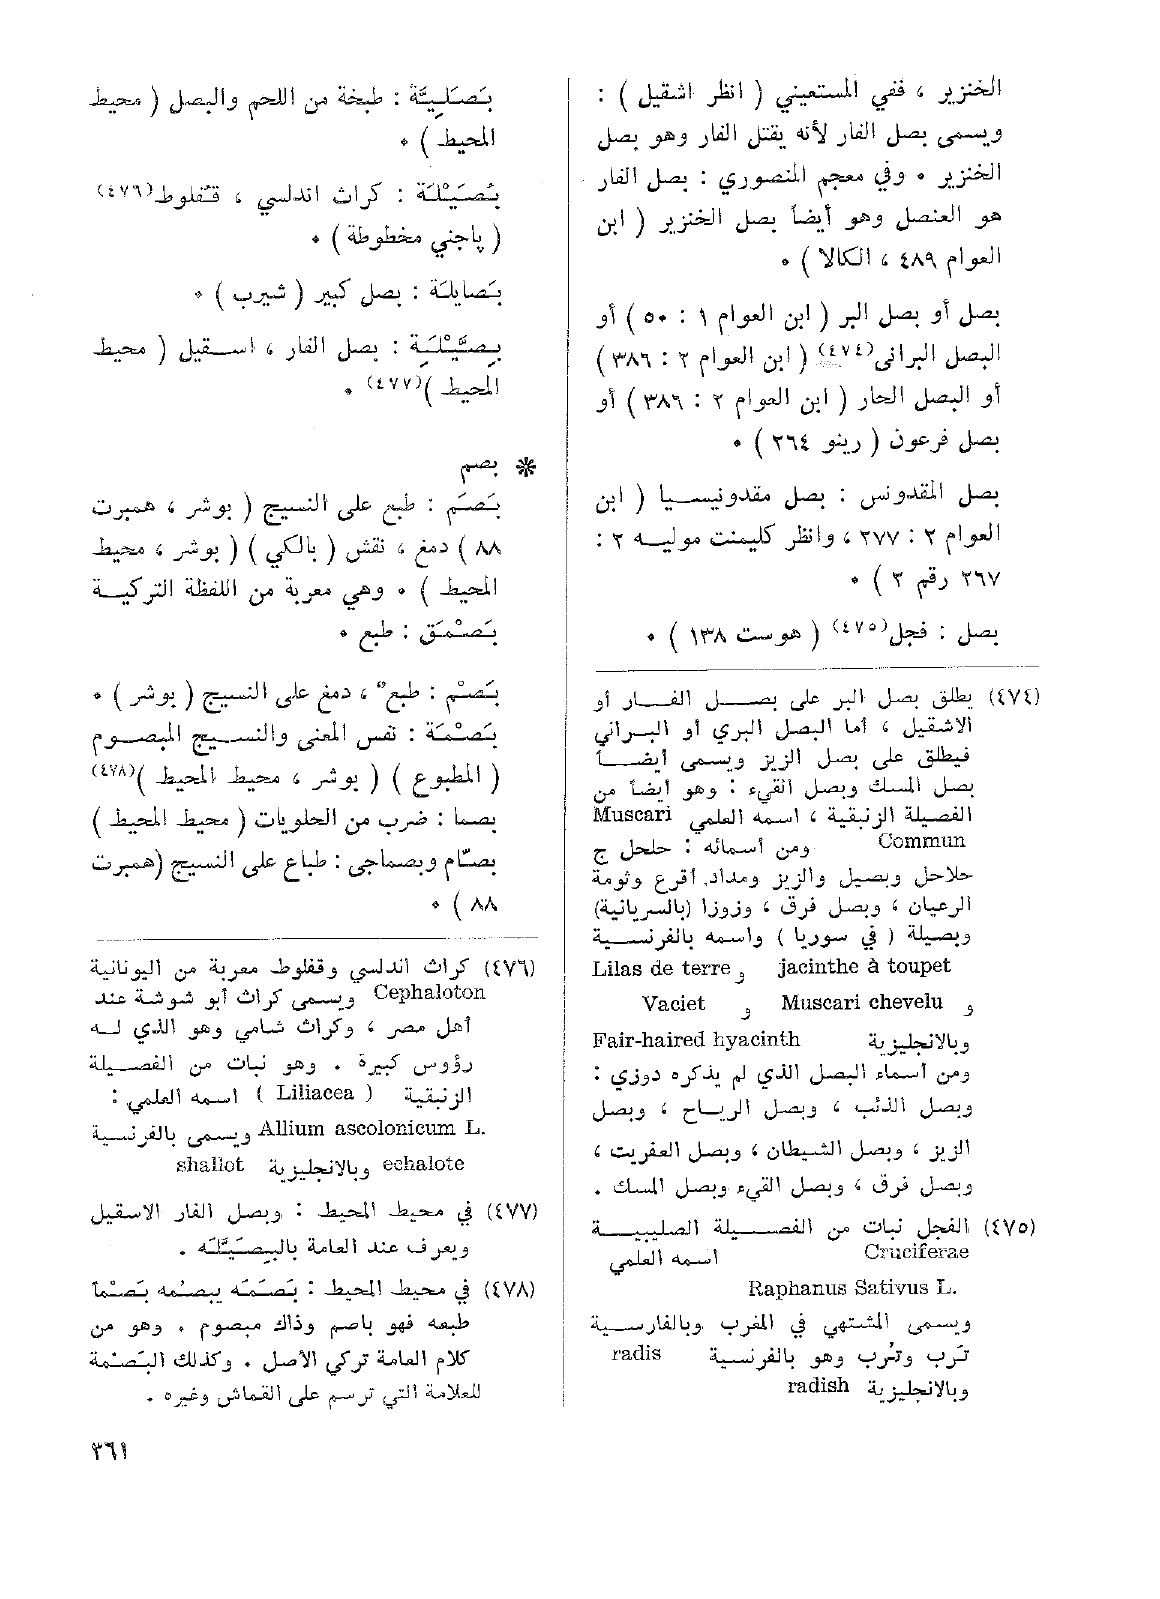 الخنزير ، ففي المستعيني ( انظر اشقيل ) :
ويسمى بصل الفار لأنه يقتل الفار وهو بصل
الخنزير • وفي معجم المنصوري : بصل الفار
هو العنصل وهو أيضاً بصل الخنزير ( ابن
العوام ٤٨٩ ، الكالا ) •
بصل أو بصل البر ( ابن العوام ١ : ٥٠ ) أو
البصل البراني(٤٧٤) ( ابن العوام ٢ : ٣٨٦ )
أو البصل الحار ( ابن العوام ٢ : ٣٨٦ ) أو
بصل فرعون ( رينو ٢٦٤ ) •
بصل المقدونس : بصل مقدونيسيا ( ابن
العوام ٢ : ٢٧٧ ، وانظر كليمنت موليه ٢ :
٢٦٧ رقم ٢ ) •
بصل : فجل(٤٧٥) ( هوست ١٣٨ ) •
(٤٧٤) يطلق بصل البر على بصل الفار أو
الاشقيل ، أما البصل البري أو البراني
فيطلق على بصل الزيز ويسمى أيضاً
بصل المسك وبصل القيء : وهو أيضاً من
الفصيلة الزنبقية ، اسمه العلمي Muscari
Commun ومن أسمائه : حلحل ج
حلاحل وبصيل والزيز ومداد. أقرع وثومة
الرعيان ، وبصل فرق ، وزوزا (بالسريانية)
وبصيلة ( في سوريا ) واسمه بالفرنسية
jacinthe à toupet و Lilas de terre
و Muscari chevelu و Vaciet
وبالانجليزية Fair-haired hyacinth
ومن أسماء البصل الذي لم يذكره دوزي :
وبصل الذئب ، وبصل الرياح ، وبصل
الزيز ، وبصل الشيطان ، وبصل العفريت ،
وبصل فرق ، وبصل القيء وبصل المسك .
(٤٧٥) الفجل نبات من الفصيلة الصليبية
Cruciferae اسمه العلمي
Raphanus Sativus L.
ويسمى المشتهي في المغرب وبالفارسية
تَرب وتُرب وهو بالفرنسية radis
وبالانجليزية radish
بَصَلِيَّة : طبخة من اللحم والبصل ( محيط
المحيط ) •
بُصَيْلَة : كراث اندلسي ، قفلوط(٤٧٦)
( پاجني مخطوطة ) •
بَصايلة : بصل كبير ( شيرب ) •
بِصَيْلَة : بصل الفار ، اسقيل ( محيط
المحيط )(٤٧٧) •
* بصم
بَصَم : طبع على النسيج ( بوشر ، همبرت
٨٨ ) دمغ ، نقش ( بالكي ) ( بوشر ، محيط
المحيط ) • وهي معربة من اللفظة التركية
بَصْمَق : طبع •
بَصْم : طبع ، دمغ على النسيج ( بوشر ) •
بَصْمَة : نفس المعنى والنسيج المبصوم
( المطبوع ) ( بوشر ، محيط المحيط )(٤٧٨)
بصما : ضرب من الحلويات ( محيط المحيط )
بصّام وبصماجى : طباع على النسيج (همبرت
٨٨ ) •
(٤٧٦) كراث أندلسي وقفلوط معربة من اليونانية
Cephaloton ويسمى كراث أبو شوشة عند
أهل مصر ، وكراث شامي وهو الذي له
رؤوس كبيرة . وهو نبات من الفصيلة
الزنبقية ( Liliacea ) اسمه العلمي :
Allium ascolonicum L. ويسمى بالفرنسية
echalote وبالانجليزية shallot
(٤٧٧) في محيط المحيط : وبصل الفار الاسقيل
ويعرف عند العامة بالبِصَيْلَة .
(٤٧٨) في محيط المحيط : بَصَمَه يبصُمه بَصْمًا
طبعه فهو باصم وذاك مبصوم . وهو من
كلام العامة تركي الأصل . وكذلك البَصْمة
للعلامة التي ترسم على القماش وغيره .
٣٦١